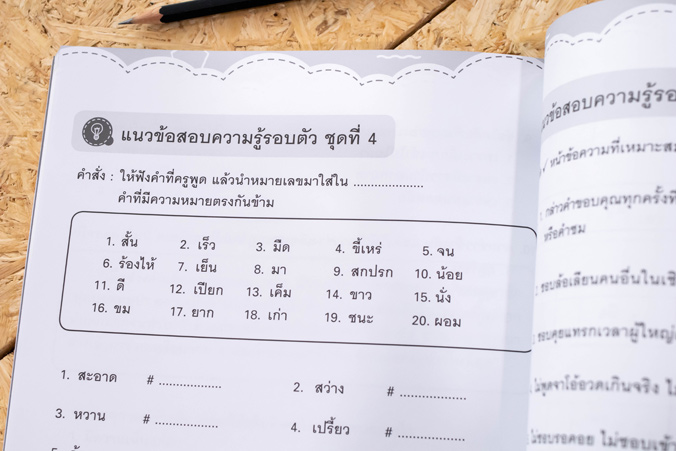 แนวข้อสอบความรู้รอบตัว ชุดที่ 4
คำสั่ง : ให้ฟังคำที่ครูพูด แล้วนำหมายเลขมาใส่ใน ....................
คำที่มีความหมายตรงกันข้าม
1. สั้น 2. เร็ว 3. มืด 4. ขี้เหร่ 5. จน
6. ร้องไห้ 7. เย็น 8. มา 9. สกปรก 10. น้อย
11. ดี 12. เปียก 13. เค็ม 14. ขาว 15. นั่ง
16. ขม 17. ยาก 18. เก่า 19. ชนะ 20. ผอม
1. สะอาด # .................. 2. สว่าง # ..................
3. หวาน # .................. 4. เปรี้ยว # ..................
ข้อสอบความรู้รอ
หน้าข้อความที่เหมาะส
กล่าวคำขอบคุณทุกครั้งที่
หรือคำชม
ชอบล้อเลียนคนอื่นในเชิ
ชอบคุยแทรกเวลาผู้ใหญ่
ไม่พูดจาโอ้อวดเกินจริง
ไม่ชอบรอคอย ไม่ชอบเข้า